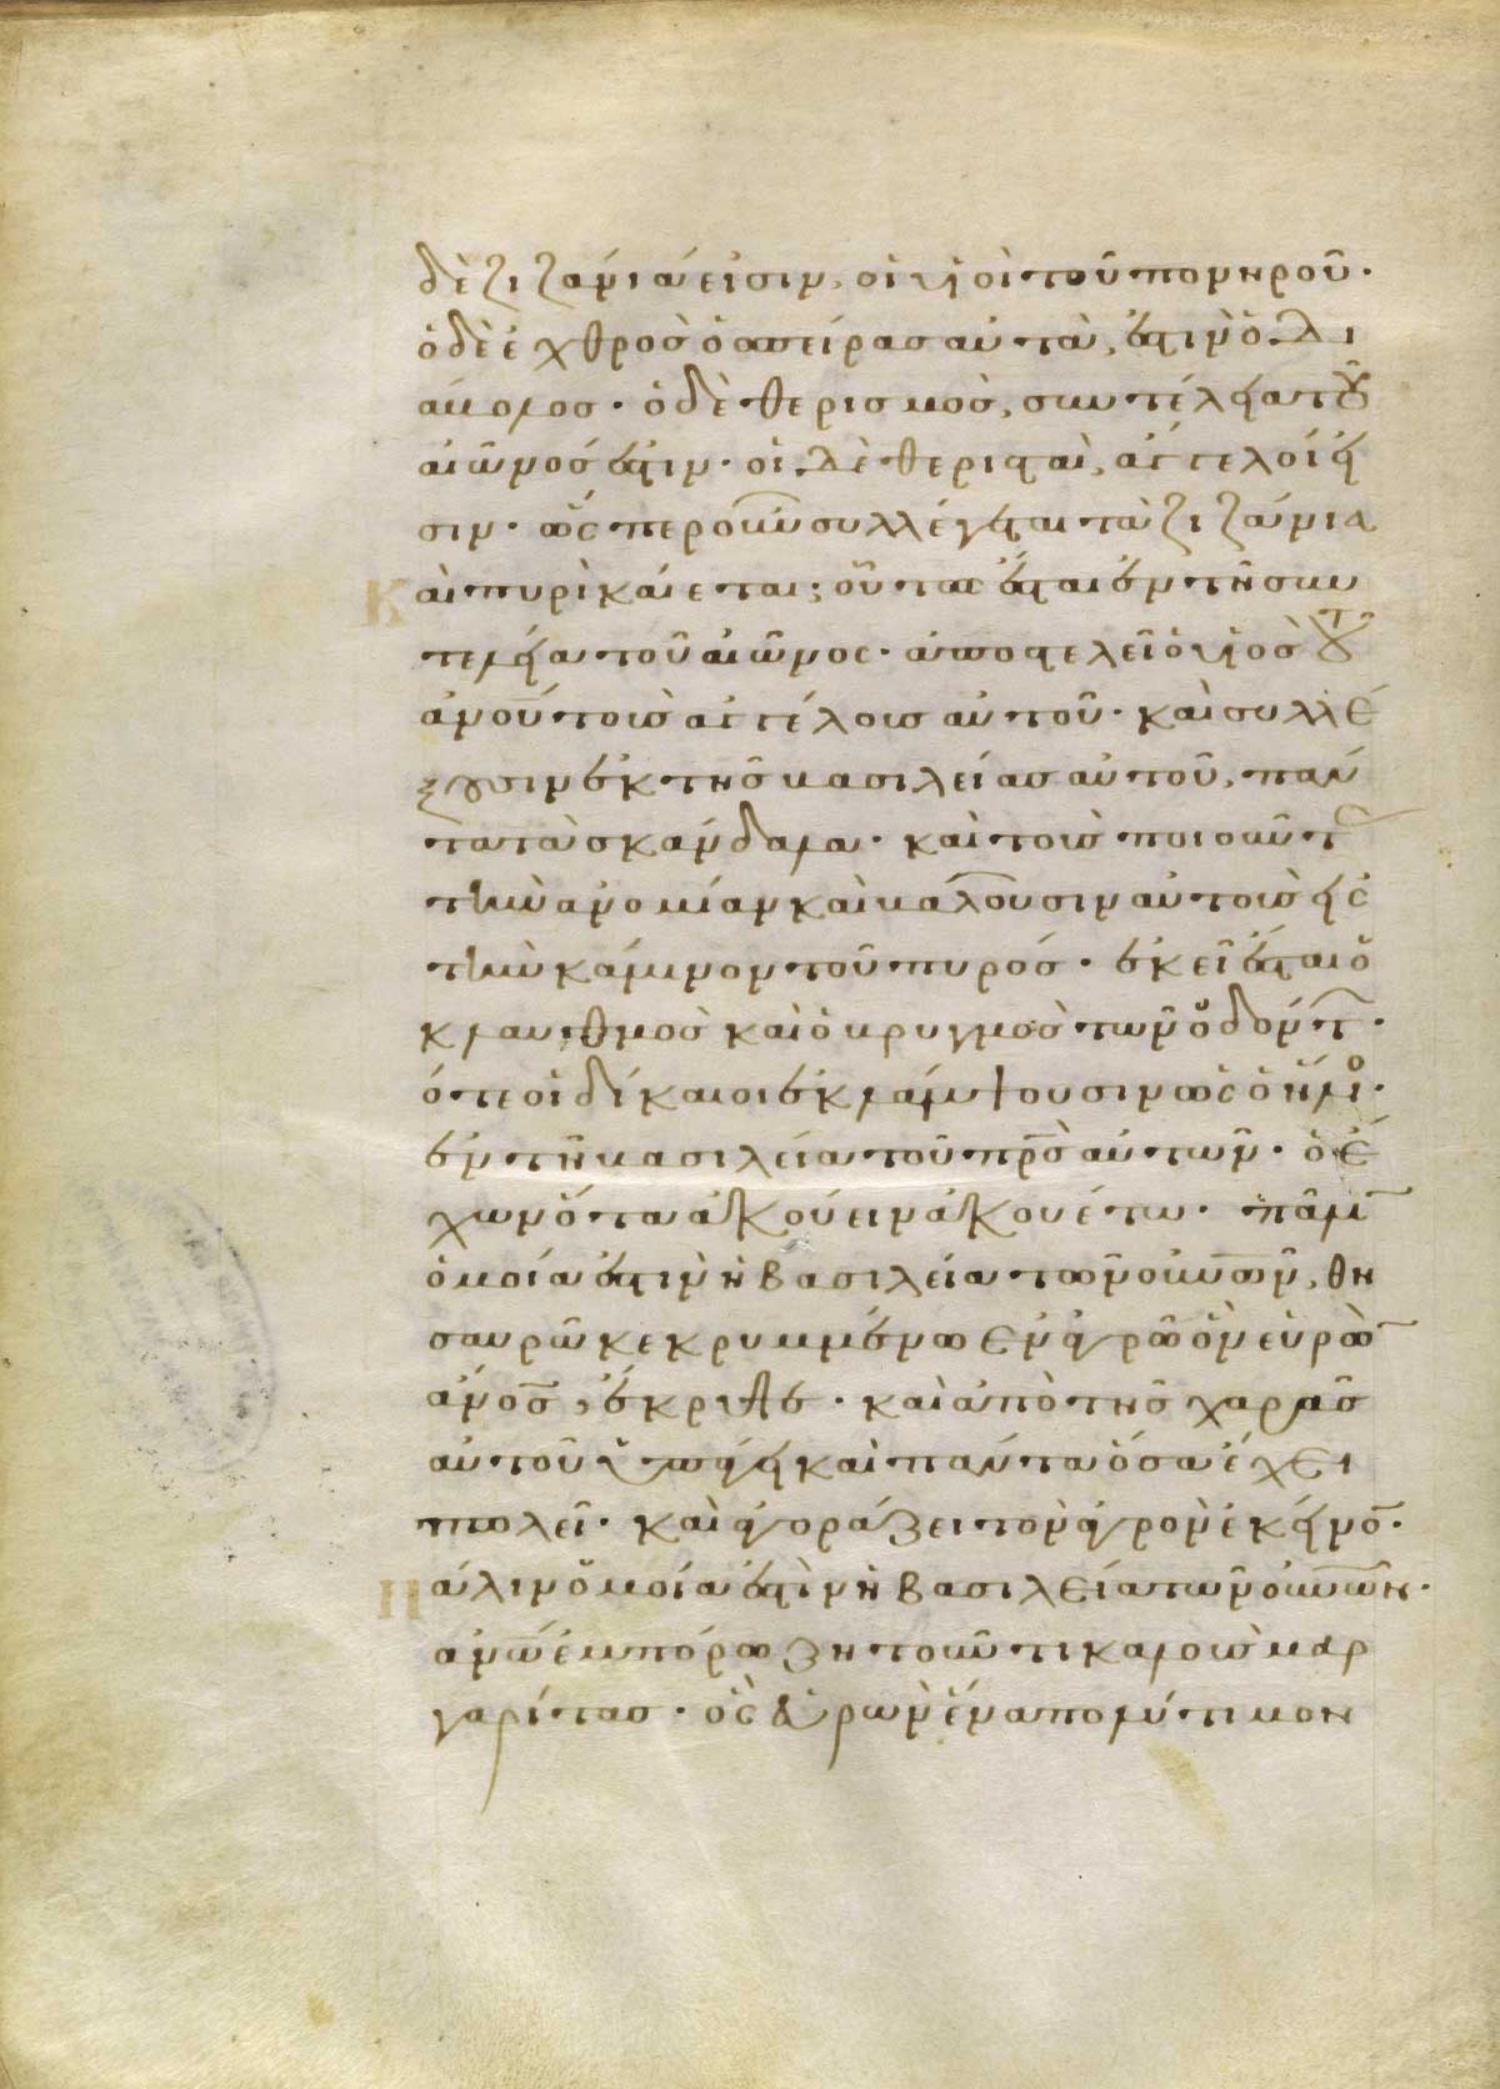 δὲ ζιζάνιά εἰσιν, οἱ υἱοὶ τοῦ πονηροῦ·
ὁ δὲ ἐχθρὸς ὁ σπείρας αὐτὰ, ἐστὶν ὁ δι
άβολος· ὁ δὲ θερισμὸς, συντέλεια τοῦ
αἰῶνός ἐστιν· οἱ δὲ θερισταὶ, ἄγγελοί εἰ
σιν· ὥσπερ οὖν συλλέγεται τὰ ζιζάνια
Καὶ πυρὶ καίεται; οὕτως ἔσται ἐν τῇ συν
τελεία τοῦ αἰῶνος· ἀποστελεῖ ὁ υἱὸς τοῦ
ἀνου τοὺς ἀγγέλους αὐτοῦ· καὶ συλλέ
ξουσιν ἐκ τῆς βασιλείας αὐτοῦ, πάν
τα τὰ σκάνδαλα· καὶ τοὺς ποιοῦντ
τὴν ἀνομίαν καὶ βαλοῦσιν αὐτοὺς εἰς
τὴν κάμινον τοῦ πυρός· ἐκεῖ ἔσται ὁ
κλαυθμὸς καὶ ὁ βρυγμὸς τῶν ὀδόντ·
ότε οἱ δίκαιοι ἐκλάμψουσιν ὡς ὁ ἥλι·
ἐν τῇ βασιλεία τοῦ πρς αὐτῶν· ὁ ἔ
χων ὦτα ἀκούειν ἀκουέτω· πάλι
ὁμοία ἐστὶν ἡ βασιλεία τῶν οὐνῶν, θη
σαυρῶ κεκρυμμένω ἐν ἀγρῶ ὃν εὑρὼ
ἄνος, ἔκρυψε· καὶ ἀπὸ τῆς χαρᾶς
αὐτοῦ ὑπάγει καὶ πάντα ὅσα ἔχει
πωλεῖ· καὶ ἀγοράζει τὸν ἀγρὸν ἐκεῖνο·
Πάλιν ὁμοία ἐστὶν ἡ βασιλεία τῶν οὐνῶν·
ἀνω ἐμπόρω ζητοῦντι καλοὺς μαρ
γαρίτας· ὃς εὑρὼν ἕνα πολύτιμον